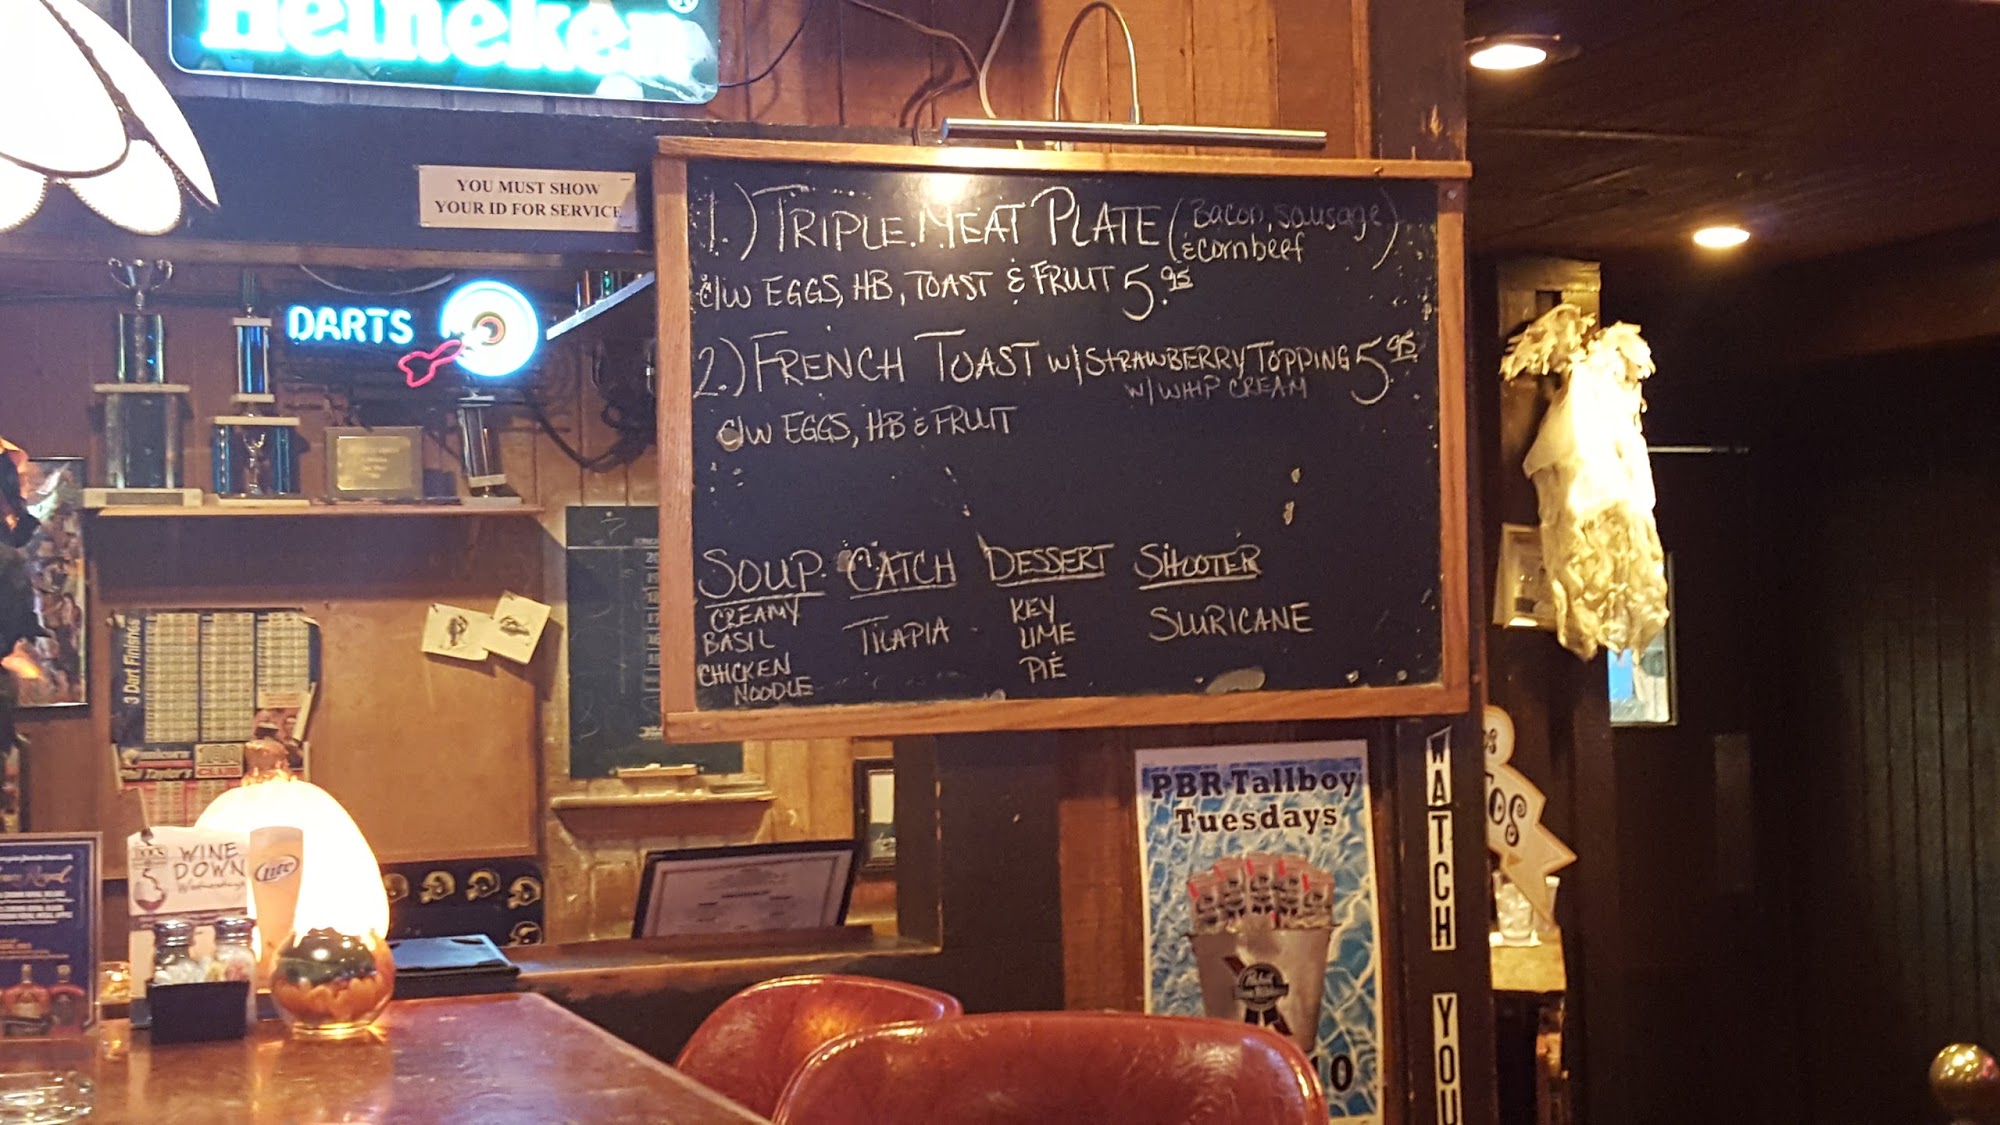 Heineken
YOU MUST SHOW
YOUR ID FOR SERVICE
DARTS
1.) TRIPLE MEAT PLATE (Bacon, sausage
& cornbeef)
c/w EGGS, HB, TOAST & FRUIT 5.95
2.) FRENCH TOAST w/ STRAWBERRY TOPPING 5.95
w/ WHIP CREAM
c/w EGGS, HB & FRUIT
SOUP
CREAMY
BASIL
CHICKEN
NOODLE
CATCH
TILAPIA
DESSERT
KEY
LIME
PIE
SHOOTER
SLURICANE
3 Dart Finishes
Phil Taylor's
WINE
DOWN
Wednesdays
Lite
PBR Tallboy
Tuesdays
10
WATCH YOU